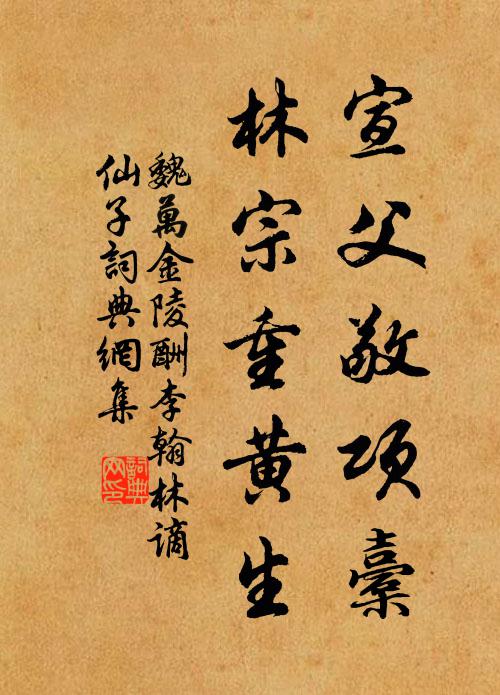 宣父敬項橐
林宗重黃生
魏萬金陵酬李翰林謫
仙子詞典網集
詞典网印